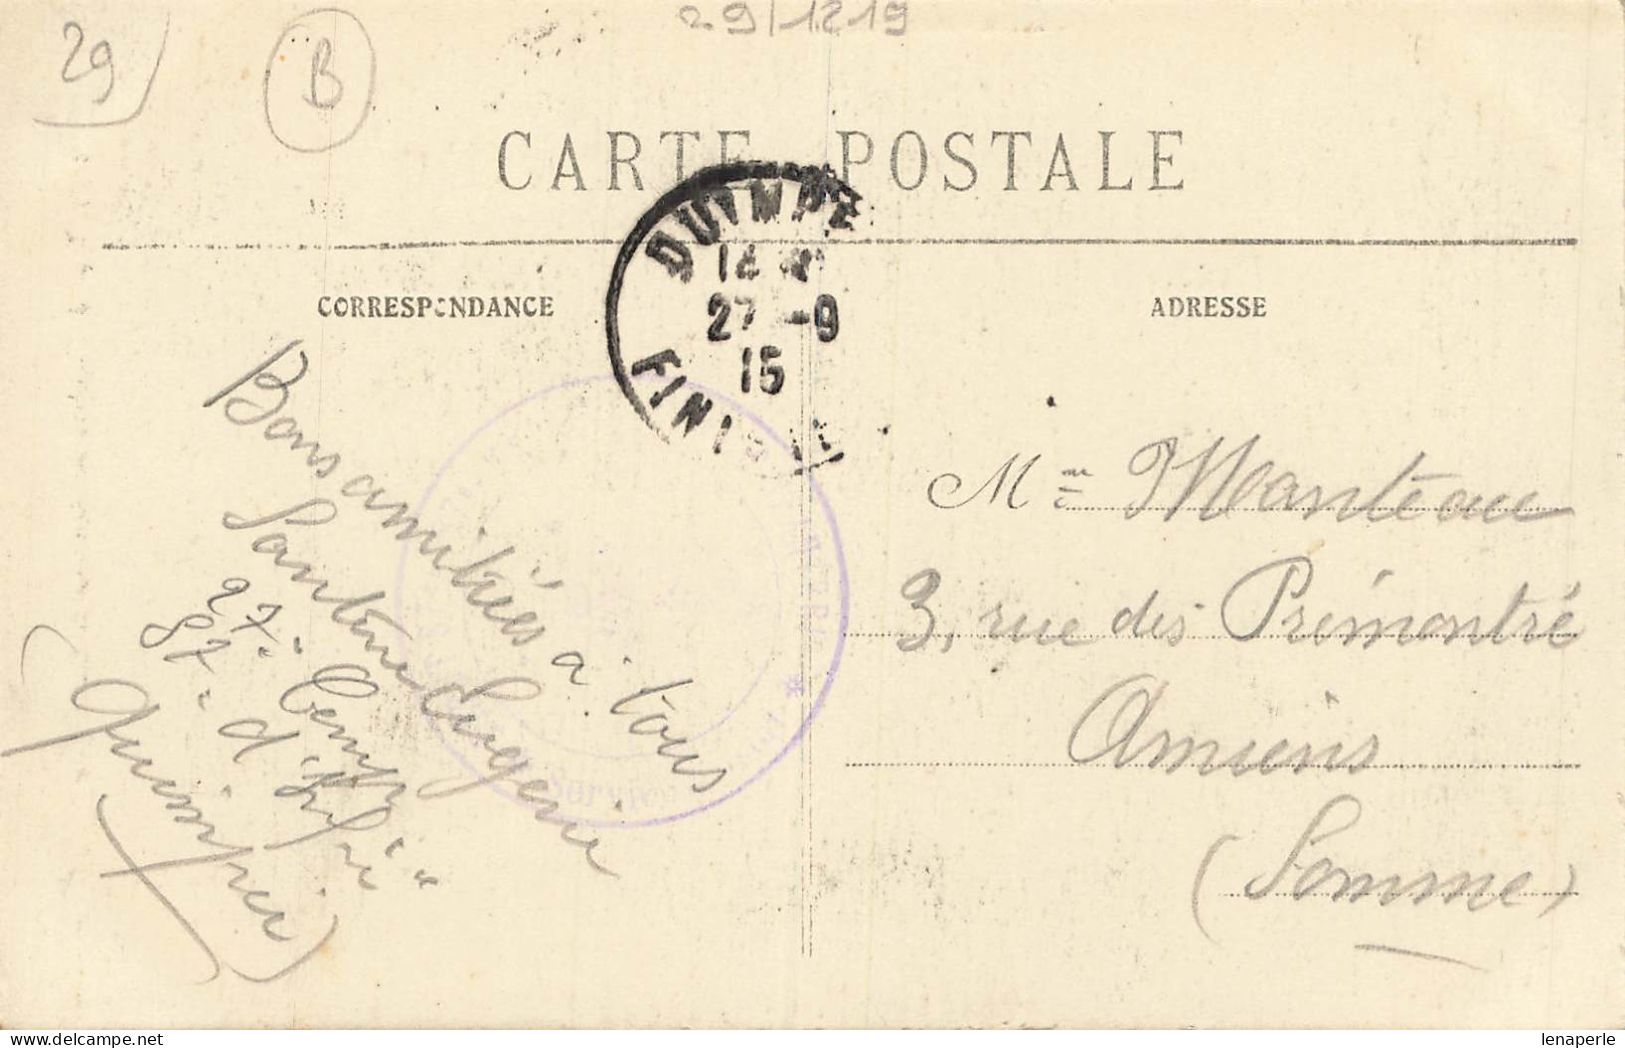 29
B
29/1219
CARTE POSTALE
QUIMPE
27 -9
15
FINI
CORRESPONDANCE
ADRESSE
Bons amitiées à tous
Santerne Eugène
27e Comp
87e d'Infie
(Quimper)
Mme Manteau
3, rue des Prémontré
Amiens
(Somme)
lenaperle